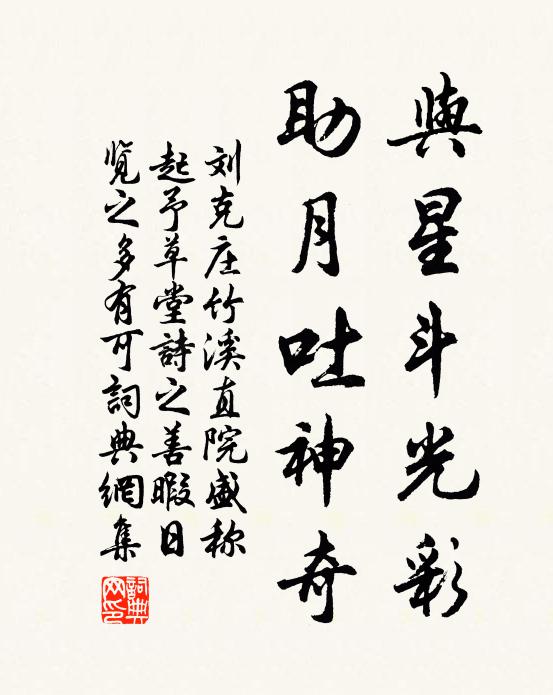 與星斗光彩
助月吐神奇
刘克庄竹溪直院盛称
起予草堂詩之善暇日
覧之多有可詞典網集
詞典网印